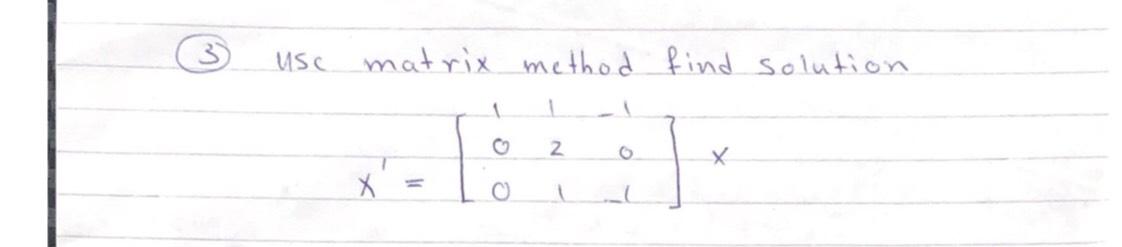 ③ use matrix method find solution
1 1 -1
0 2 0
x' = [ 0 1 -1 ] x